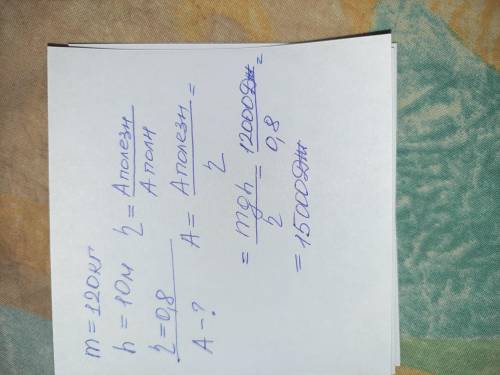 m = 120кг
h = 10м η = Aполезн / Aполн
η = 0,8
A - ? A = Aполезн / η =
= mgh / η = 12000Дж / 0,8 =
= 15000Дж